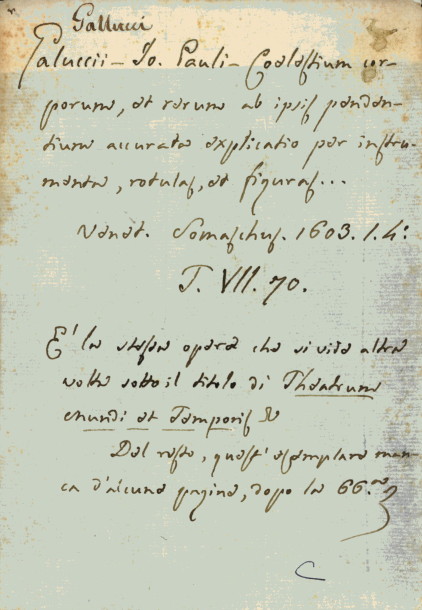 Gallucci
Galuccii - Jo. Pauli - Coelestium cor-
porum, et rerum ab ipsis penden-
tium accurata explicatio per instru-
menta, rotulas, et figuras...
Venet. Somaschus. 1603. 1. 4.º
T. VII. 70.
E' la stessa opera che si vide altre
volte sotto il titolo di Theatrum
mundi et Temporis &
Del resto, quest' esemplare man-
ca d'alcune pagine, dopo la 66.ma
C